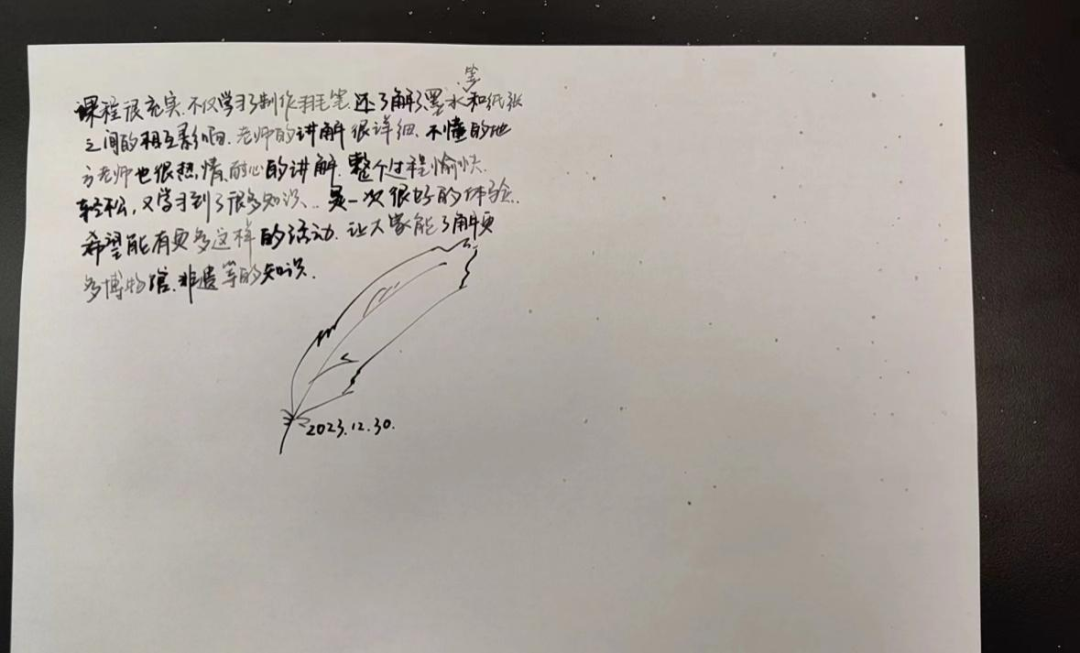 笔
课程很充实.不仅学习了制作羽毛笔.还了解了墨水和纸张
之间的相互影响.老师的讲解很详细.不懂的地
方老师也很热情,耐心的讲解.整个过程愉快.
轻松,又学习到了很多知识..是一次很好的体验.
希望能有更多这样的活动.让大家能了解更
多博物馆.非遗等的知识.
2023.12.30.